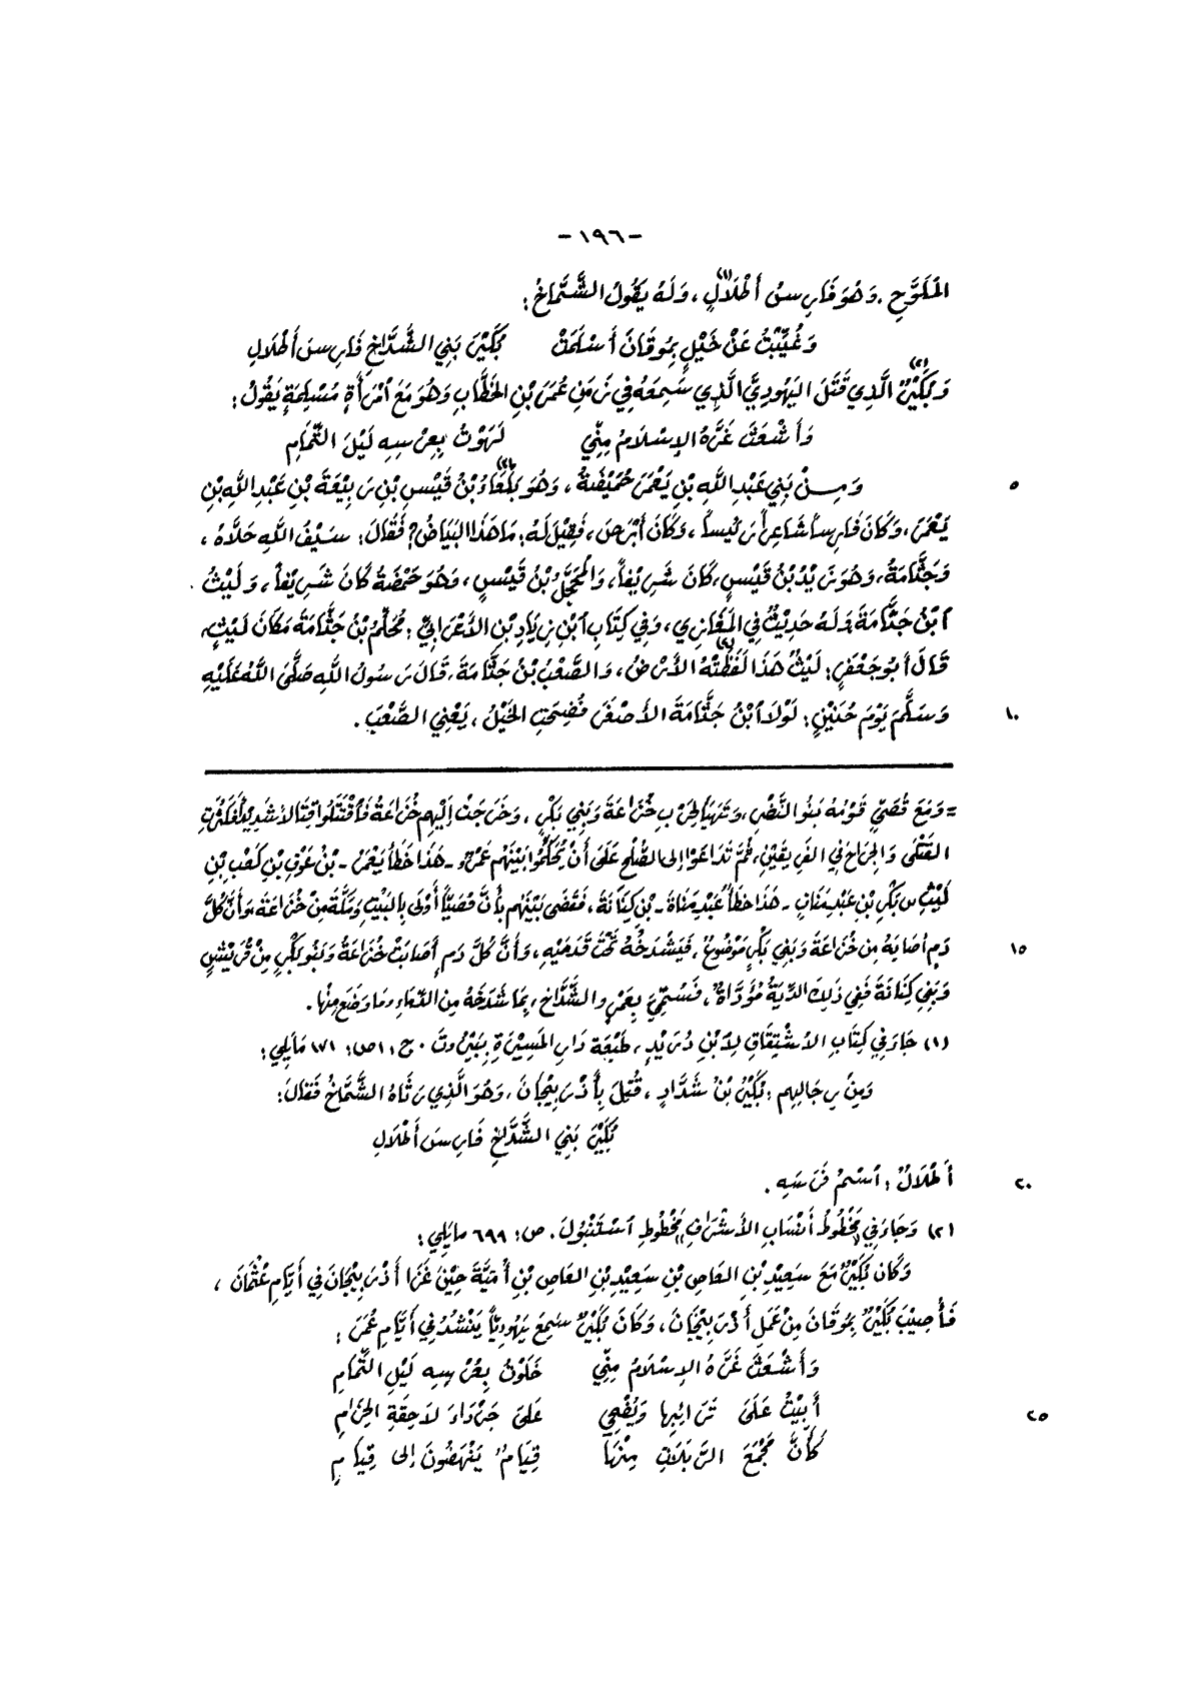 -١٩٦-
المُلَوَّحِ، وَهُوَ فَارِسُ أَطْلَالٍ(١)، وَلَهُ يَقُولُ الشَّمَّاخُ:
وَغُيِّبْتُ عَنْ خَيْلٍ بِمُوقَانَ أَسْلَمَتْ بُكَيْرَ بَنِي الشَّدَّاخِ فَارِسَ أَطْلَالِ
وَبُكَيْرٌ(٢) الَّذِي قَتَلَ اليَهُودِيَّ الَّذِي سَمِعَهُ فِي زَمَنِ عُمَرَ بْنِ الخَطَّابِ وَهُوَ مَعَ ٱمْرَأَةٍ مُسْلِمَةٍ يَقُولُ:
وَأَشْعَثَ غَرَّهُ الإِسْلَامُ مِنِّي لَهَوْتُ بِعِرْسِهِ لَيْلَ التَّمَامِ
٥ وَمِنْ بَنِي عَبْدِ اللَّهِ بْنِ يَعْمَرَ حُمَيْضَةُ، وَهُوَ بَلْعَاءُ(٣) بْنُ قَيْسِ بْنِ رَبِيْعَةَ بْنِ عَبْدِ اللَّهِ بْنِ
يَعْمَرَ، وَكَانَ فَارِساً شَاعِراً رَئِيساً، وَكَانَ أَبْرَصَ، فَقِيْلَ لَهُ: مَا هَذَا البَيَاضُ؟ فَقَالَ: سَيْفُ اللَّهِ حَلَّاهُ،
وَجَثَّامَةُ، وَهُوَ زَيْدُ بْنُ قَيْسٍ، كَانَ شَرِيْفاً، وَالمُحَجَّلُ بْنُ قَيْسٍ، وَهُوَ حَمْضَةُ كَانَ شَرِيْفاً، وَلَيْثُ
ٱبْنُ جَثَّامَةَ وَلَهُ حَدِيْثٌ فِي المَغَازِي، وَفِي كِتَابِ ٱبْنِ زِيَادِ بْنِ الأَعْرَابِيِّ: مُحَلِّمُ بْنُ جَثَّامَةَ مَكَانَ لَيْثٍ،
قَالَ أَبُو جَعْفَرٍ: لَيْثٌ هَذَا لَفَظَتْهُ(٤) الأَرْضُ، وَالصَّعْبُ بْنُ جَثَّامَةَ، قَالَ رَسُولُ اللَّهِ صَلَّى اللَّهُ عَلَيْهِ
١٠ وَسَلَّمَ يَوْمَ حُنَيْنٍ: لَوْلَا ٱبْنُ جَثَّامَةَ الأَصْغَرُ فُضِحَتِ الخَيْلُ، يَعْنِي الصَّعْبَ.
= وَمَعَ قُصَيٍّ قَوْمُهُ بَنُو النَّضْرِ، وَتَهَيَّأَ لِحَرْبِ خُزَاعَةَ وَبَنِي بَكْرٍ، وَخَرَجَتْ إِلَيْهِمْ خُزَاعَةُ فَٱقْتَتَلُوا قِتَالاً شَدِيْداً فَكَثُرَتِ
القَتْلَى وَالجِرَاحُ فِي الفَرِيقَيْنِ، ثُمَّ تَدَاعَوْا إِلى الصُّلْحِ عَلَى أَنْ يُحَكِّمُوا بَيْنَهُمْ عَمْرو - هَذَا خَطَأٌ يَعْمَرُ - بْنُ عَوْفِ بْنِ كَعْبِ بْنِ
لَيْثِ بْنِ بَكْرِ بْنِ عَبْدِ مَنَافٍ - هَذَا خَطَأٌ عَبْدِ مَنَاةَ - بْنِ كِنَانَةَ، فَقَضَى بَيْنَهُم بِأَنَّ قُصَيّاً أَوْلَى بِالبَيْتِ وَمَكَّةَ مِنْ خُزَاعَةَ، وَأَنَّ كُلَّ
١٥ دَمٍ أَصَابَهُ مِن خُزَاعَةَ وَبَنِي بَكْرٍ مَوْضُوعٌ، فَيَشْدَخُهُ تَحْتَ قَدَمَيْهِ، وَأَنَّ كُلَّ دَمٍ أَصَابَتْ خُزَاعَةُ وَبَنُو بَكْرٍ مِنْ قُرَيْشٍ
وَبَنِي كِنَانَةَ فَفِي ذَلِكَ الدِّيَةُ مُؤَدَّاةٌ، فَسُمِّيَ يَعْمَرُ الشَّدَّاخَ، بِمَا شَدَخَهُ مِنَ الدِّمَاءِ وَمَا وَضَعَ مِنْهَا.
(١) جَاءَ فِي كِتَابِ الٱشْتِقَاقِ لِٱبْنِ دُرَيْدٍ، طَبْعَة دَارِ المَسِيْرَةِ بِبَيْرُوتَ. ج: ١ ص: ١٧١ مَايَلِي:
وَمِنْ رِجَالِهِم: بُكَيْرُ بْنُ شَدَّادٍ، قُتِلَ بِأَذْرَبِيْجَانَ، وَهُوَ الَّذِي رَثَاهُ الشَّمَّاخُ فَقَالَ:
بُكَيْرَ بَنِي الشَّدَّاخِ فَارِسَ أَطْلَالِ
٢٠ أَطْلَالٌ: ٱسْمُ فَرَسِهِ.
(٢) وَجَاءَ فِي مَخْطُوطِ أَنْسَابِ الأَشْرَافِ مَخْطُوطِ ٱسْتَنْبُولَ. ص: ٦٩٩ مايَلِي:
وَكَانَ بُكَيْرٌ مَعَ سَعِيْدِ بْنِ العَاصِ بْنِ سَعِيْدِ بْنِ العَاصِ بْنِ أُمَيَّةَ حِيْنَ غَزَا أَذْرَبِيْجَانَ فِي أَيَّامِ عُثْمَانَ،
فَأُصِيْبَ بُكَيْرٌ بِمُوقَانَ مِنْ عَمَلِ أَذْرَبِيْجَانَ، وَكَانَ بُكَيْرٌ سَمِعَ يَهُودِيّاً يَنْشُدُ فِي أَيَّامِ عُمَرَ:
وَأَشْعَثَ غَرَّهُ الإِسْلَامُ مِنِّي خَلَوْتُ بِعُرْسِهِ لَيْلَ التَّمَامِ
٢٥ أَبِيْتُ عَلَى تَرَائِبِهَا وَيُضْحِي عَلَى جَرْدَاءَ لَاحِقَةِ الحِزَامِ
كَأَنَّ مَجْمَعَ الرَّبَلَاتِ مِنْهَا قِيَامٌ يَنْهَضُونَ إِلى قِيَامِ